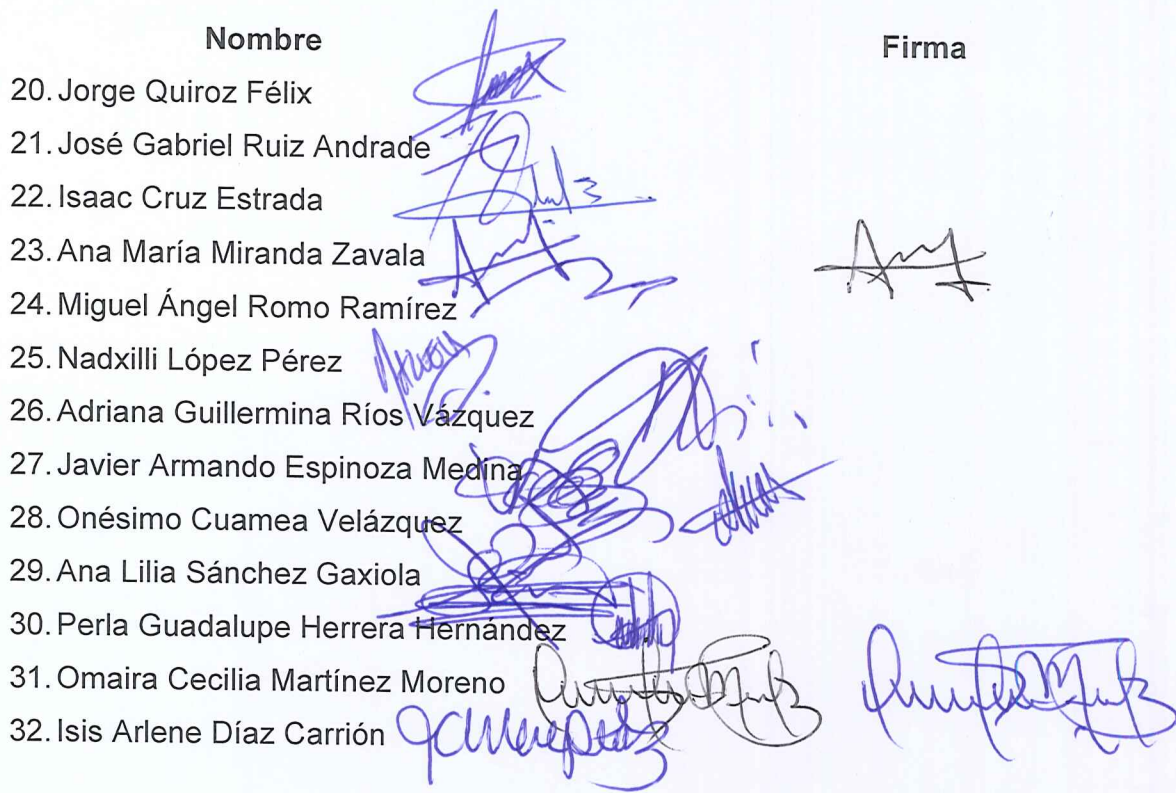 Nombre Firma
20. Jorge Quiroz Félix
21. José Gabriel Ruiz Andrade
22. Isaac Cruz Estrada
23. Ana María Miranda Zavala
24. Miguel Ángel Romo Ramírez
25. Nadxilli López Pérez
26. Adriana Guillermina Ríos Vázquez
27. Javier Armando Espinoza Medina
28. Onésimo Cuamea Velázquez
29. Ana Lilia Sánchez Gaxiola
30. Perla Guadalupe Herrera Hernández
31. Omaira Cecilia Martínez Moreno
32. Isis Arlene Díaz Carrión